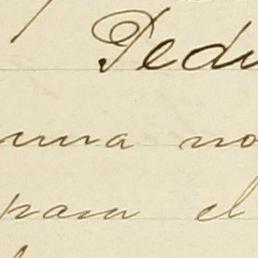 Pedi
una no
para el